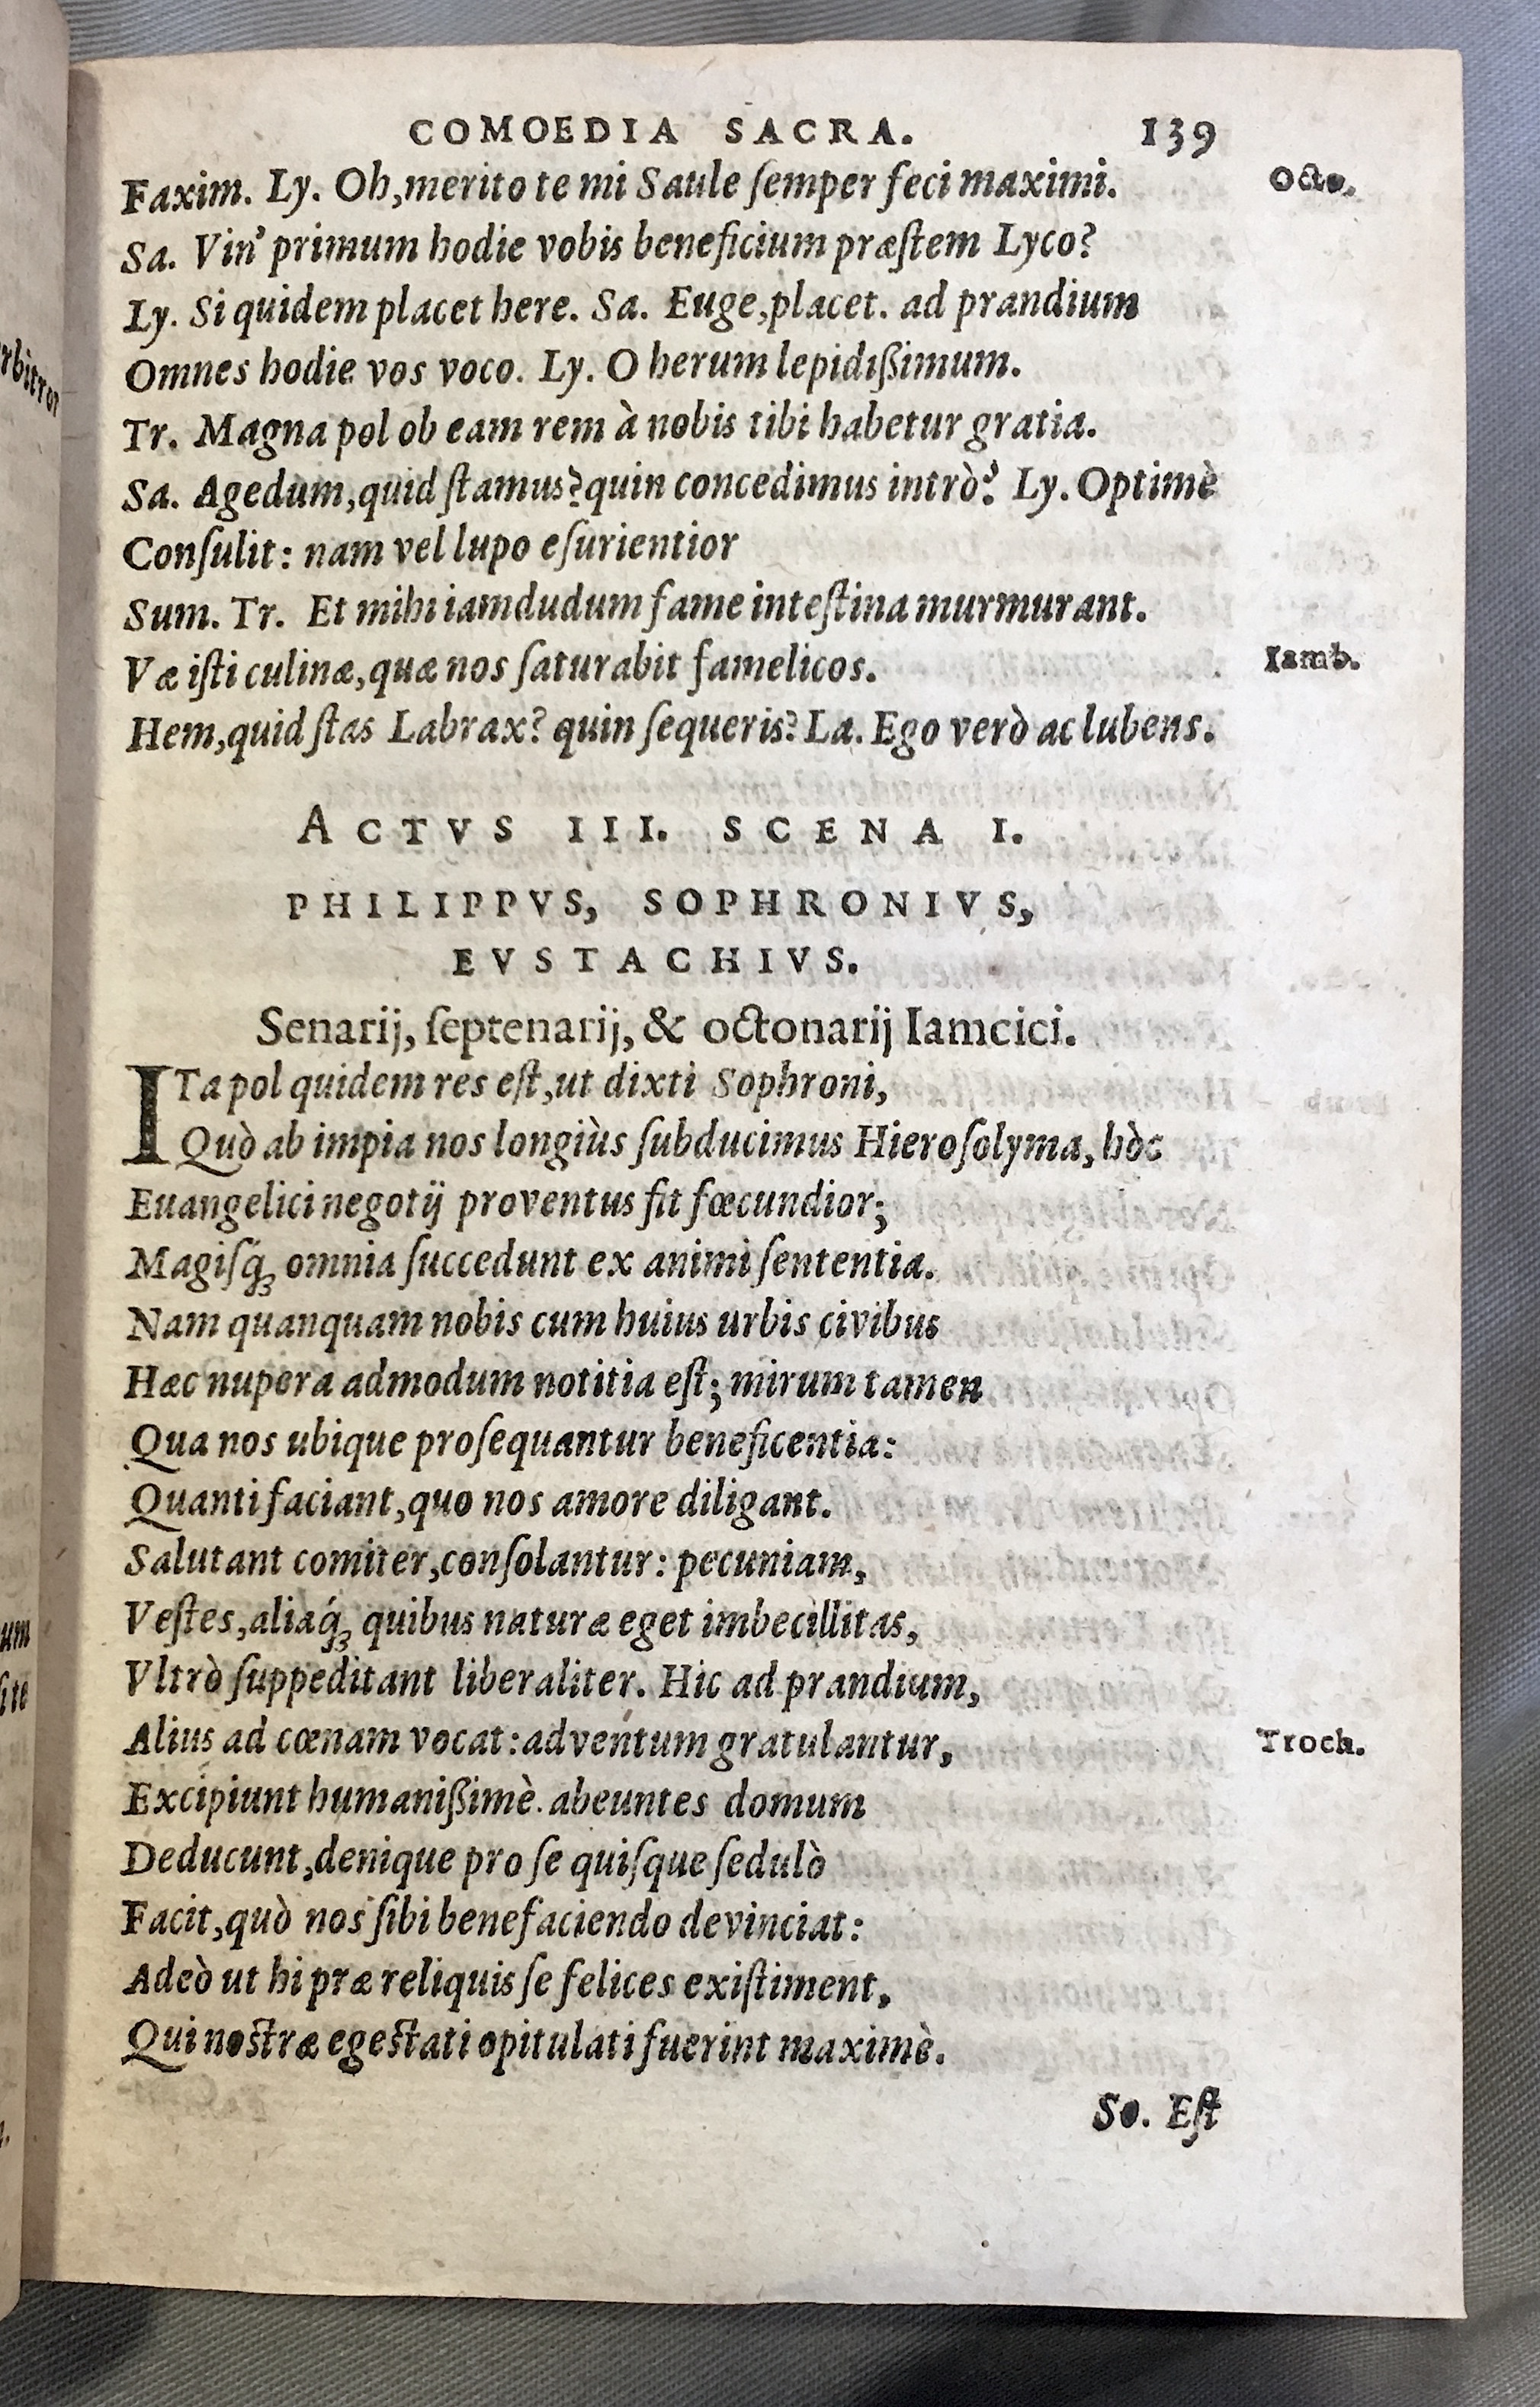 COMOEDIA SACRA. 139
Faxim. Ly. Oh,merito te mi Saule ſemper feci maximi. Octo.
Sa. Vin' primum hodie vobis beneficium præſtem Lyco?
Ly. Si quidem placet here. Sa. Euge,placet. ad prandium
Omnes hodie vos voco. Ly. O herum lepidißimum.
Tr. Magna pol ob eam rem à nobis tibi habetur gratia.
Sa. Agedum,quid ſtamus?quin concedimus intrò? Ly. Optimè
Conſulit: nam vel lupo eſurientior
Sum. Tr. Et mihi iamdudum fame inteſtina murmurant.
Væ iſti culinæ,quæ nos ſaturabit famelicos. Iamb.
Hem,quid ſtas Labrax? quin ſequeris? La. Ego verò ac lubens.
ACTVS III. SCENA I.
PHILIPPVS, SOPHRONIVS,
EVSTACHIVS.
Senarij, ſeptenarij, & octonarij Iamcici.
ITa pol quidem res eſt,ut dixti Sophroni,
Quò ab impia nos longiùs ſubducimus Hieroſolyma, hòc
Euangelici negotij proventus fit fœcundior;
Magiſq́ꝫ omnia ſuccedunt ex animi ſententia.
Nam quanquam nobis cum huius urbis civibus
Hæc nupera admodum notitia eſt; mirum tamen
Qua nos ubique proſequantur beneficentia:
Quanti faciant,quo nos amore diligant.
Salutant comiter,conſolantur: pecuniam,
Veſtes,aliaq́ꝫ quibus naturæ eget imbecillitas,
Vltrò ſuppeditant liberaliter. Hic ad prandium,
Alius ad cœnam vocat:adventum gratulantur, Troch.
Excipiunt humanißimè. abeuntes domum
Deducunt,denique pro ſe quiſque ſedulò
Facit,quò nos ſibi benefaciendo devinciat:
Adeò ut hi præ reliquis ſe felices exiſtiment,
Qui noſtræ egeſtati opitulati fuerint maximè.
So. Eſt
rbitror
um
ſite